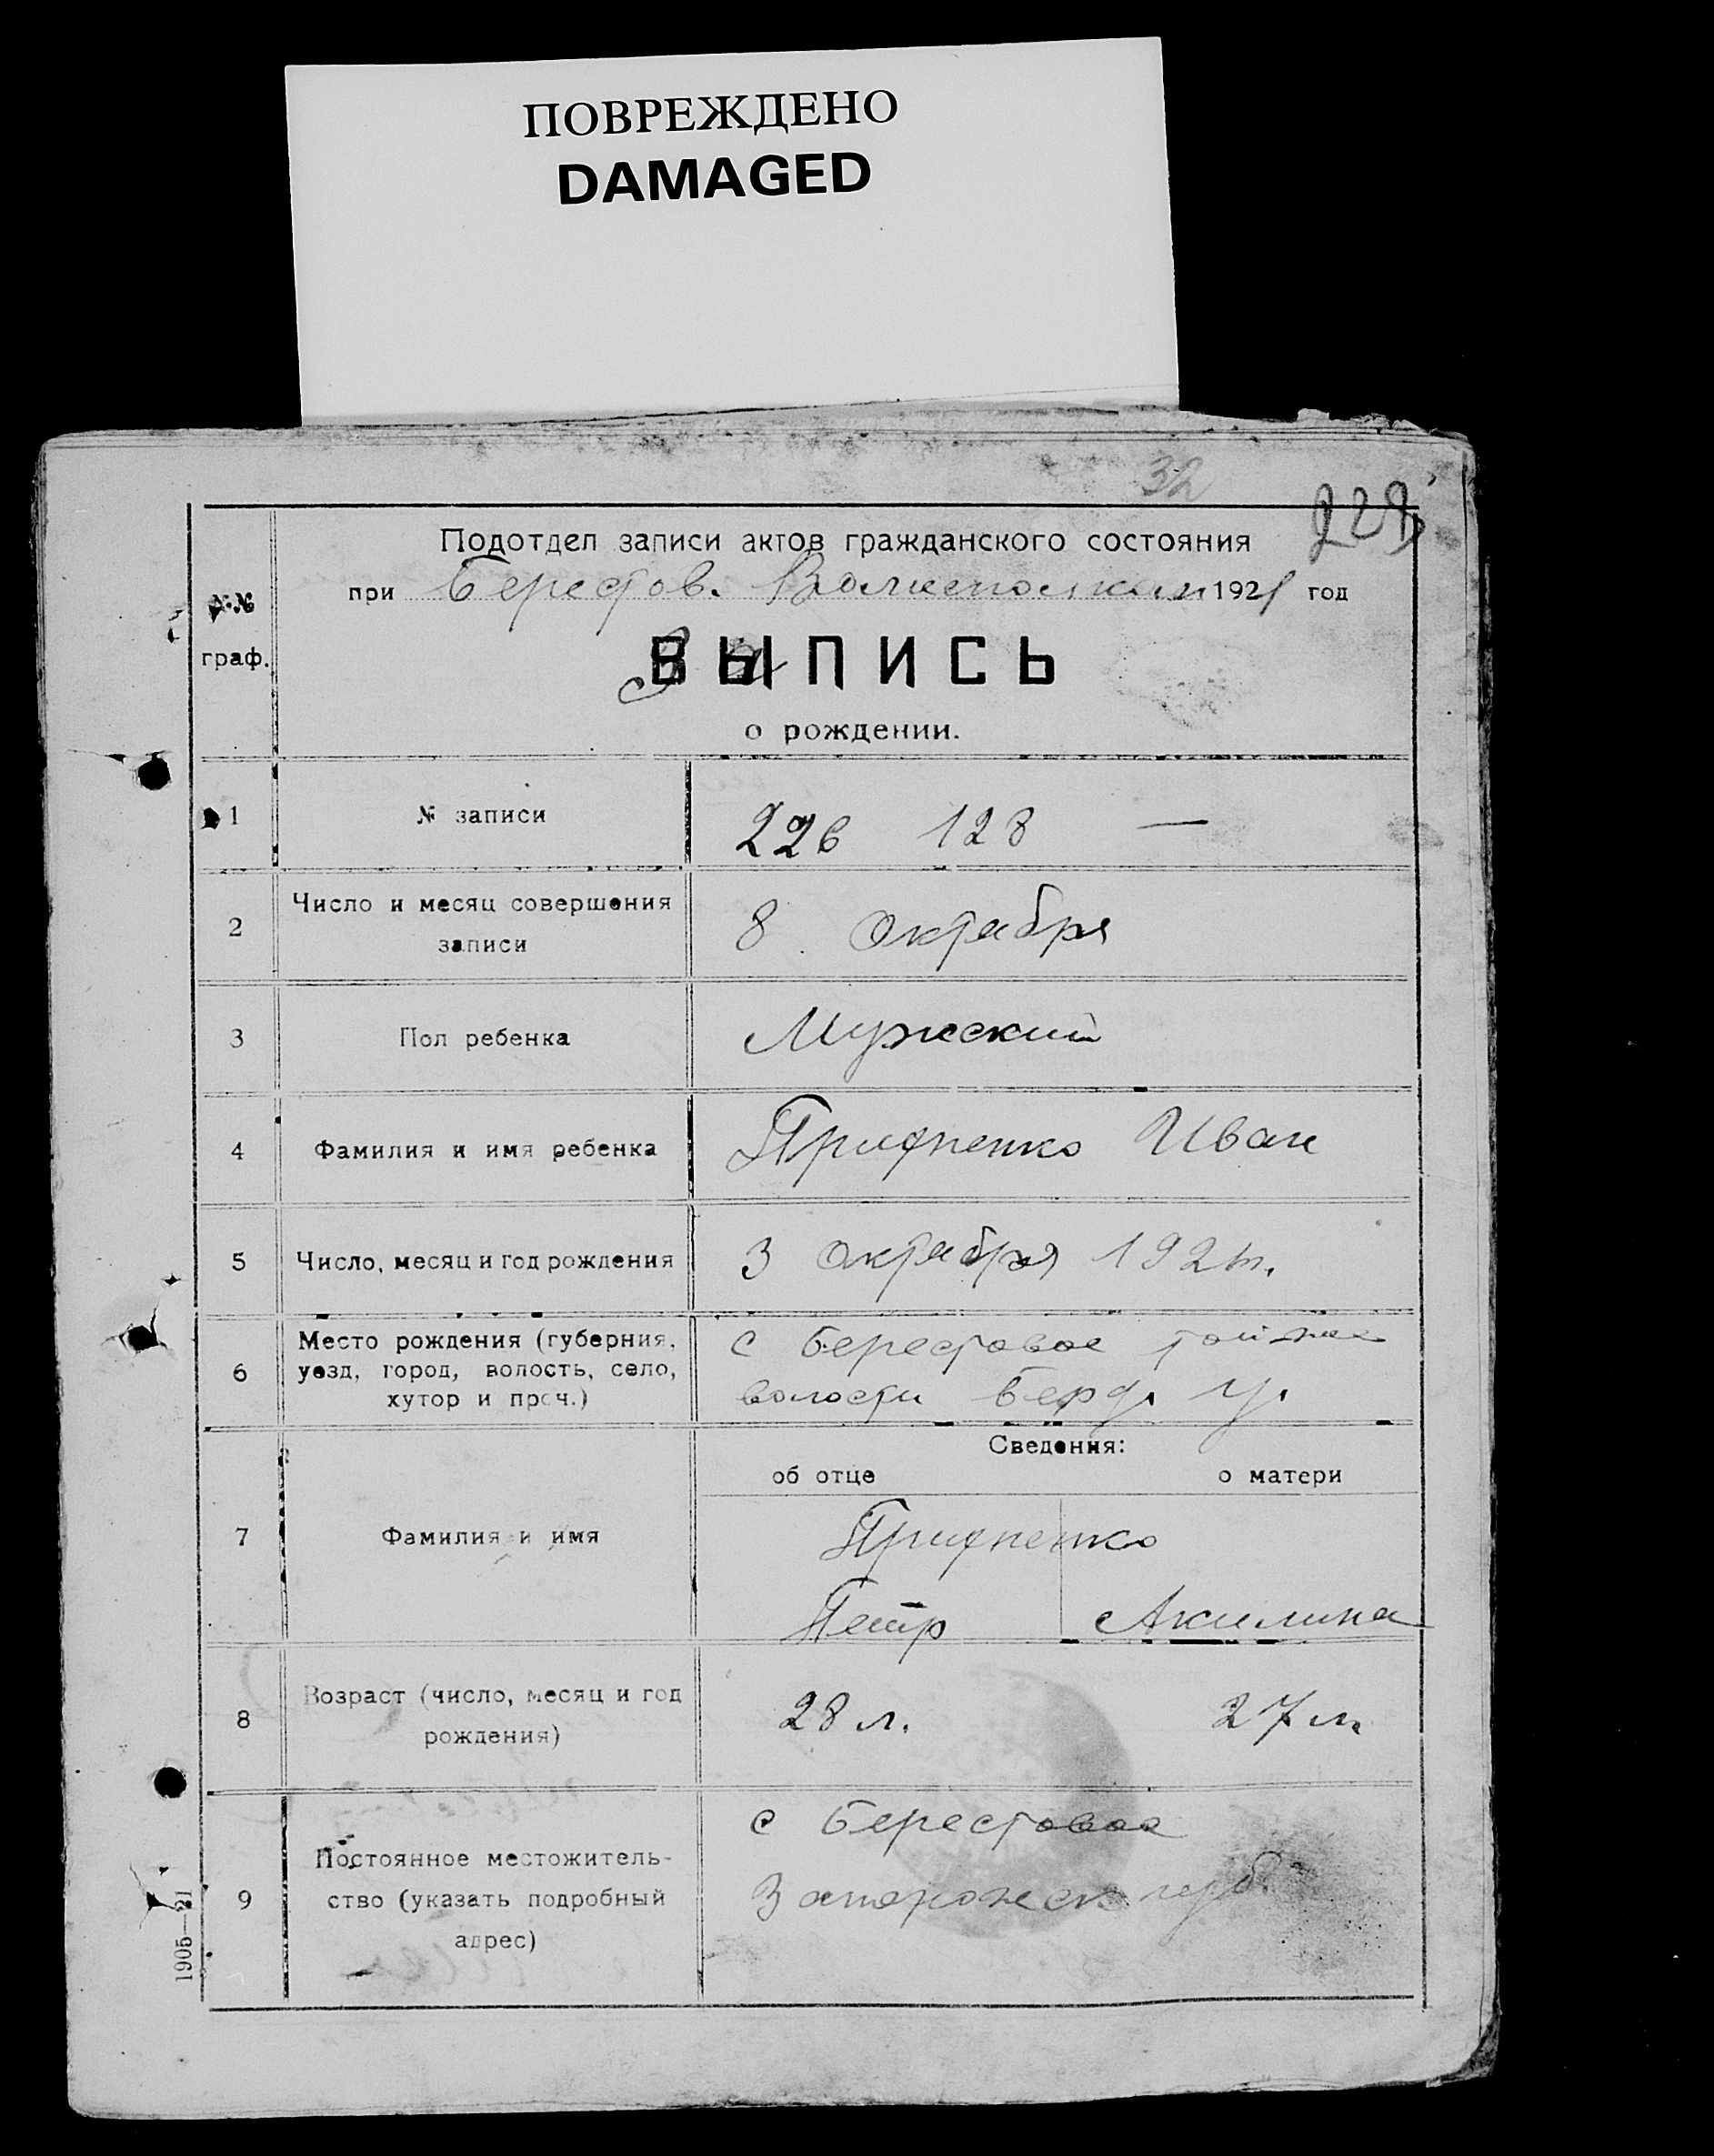 ПОВРЕЖДЕНО
DAMAGED
32
229
Подотдел записи актов гражданского состояния
при Берестов. Волисполком 1921 год
№№
граф.
ВЫПИСЬ
о рождении.
1 № записи 226 128 —
2 Число и месяц совершения
записи
8 Октября
3 Пол ребенка Мужеский
4 Фамилия и имя ребенка Придненко Иван
5 Число, месяц и год рождения 3 Октября 1921г.
6 Место рождения (губерния,
уезд, город, волость, село,
хутор и проч.)
с Берестовое той-же
волости Берд. у.
Сведения:
об отце о матери
7 Фамилия и имя Придненко
Петр Акилина
8 Возраст (число, месяц и год
рождения)
28 л. 27 л.
9 Постоянное местожитель-
ство (указать подробный
адрес)
с Берестовое
Запорожск губ.
1905—21